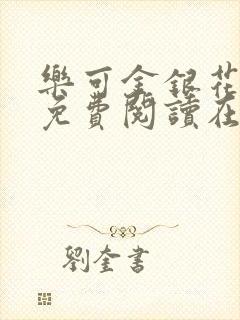 樂可金銀花
免費閱讀在
劉奎書